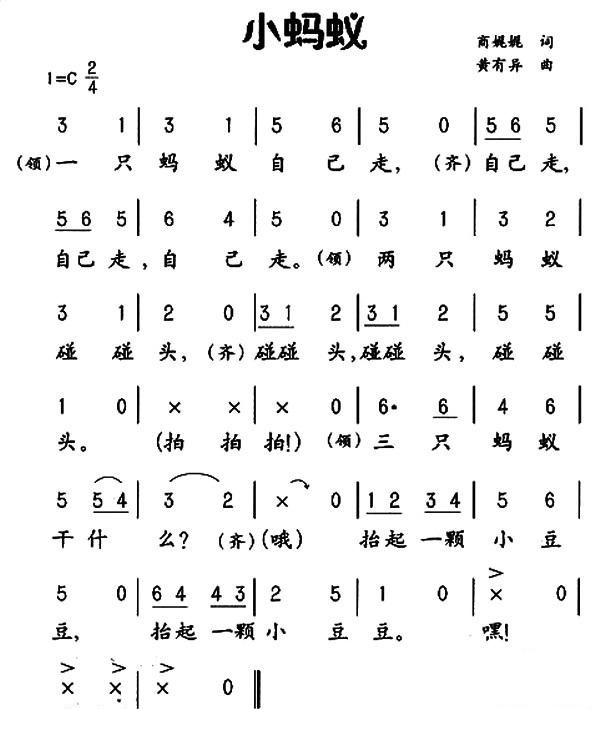 小蚂蚁
商娓娓 词
1=C 2/4 黄有异 曲
3 1 | 3 1 | 5 6 | 5 0 | 5 6 5 |
(领)一 只 蚂 蚁 自 己 走, (齐)自己走,
5 6 5 | 6 4 | 5 0 | 3 1 | 3 2 |
自己走, 自 己 走。(领) 两 只 蚂 蚁
3 1 | 2 0 | 3 1 2 | 3 1 2 | 5 5 |
碰 碰 头, (齐)碰碰 头,碰碰 头, 碰 碰
1 0 | × × | × 0 | 6· 6 | 4 6 |
头。 (拍 拍 拍!) (领)三 只 蚂 蚁
5 5 4 | 3 2 | × 0 | 1 2 3 4 | 5 6 |
干 什 么? (齐)(哦) 抬起一颗 小 豆
5 0 | 6 4 4 3 | 2 5 | 1 0 | × 0 |
豆, 抬起一颗小 豆 豆。 嘿!
× × | × 0 ‖